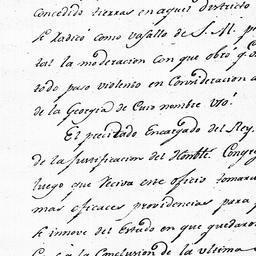 concedido tierras en aquel districto
se radicó como vasallo de S. M. p
tal la moderacion con que obró q.
todo paso violento en Consideracion a
de la Georgia de Cuio nombre
El precitado Encargado del Rey
de la justificacion del Honble. Congr
luego que Reciva este oficio tomara
mas eficaces providencias para
se innove del Estado en que quedaron
la Conclusion de la ultima